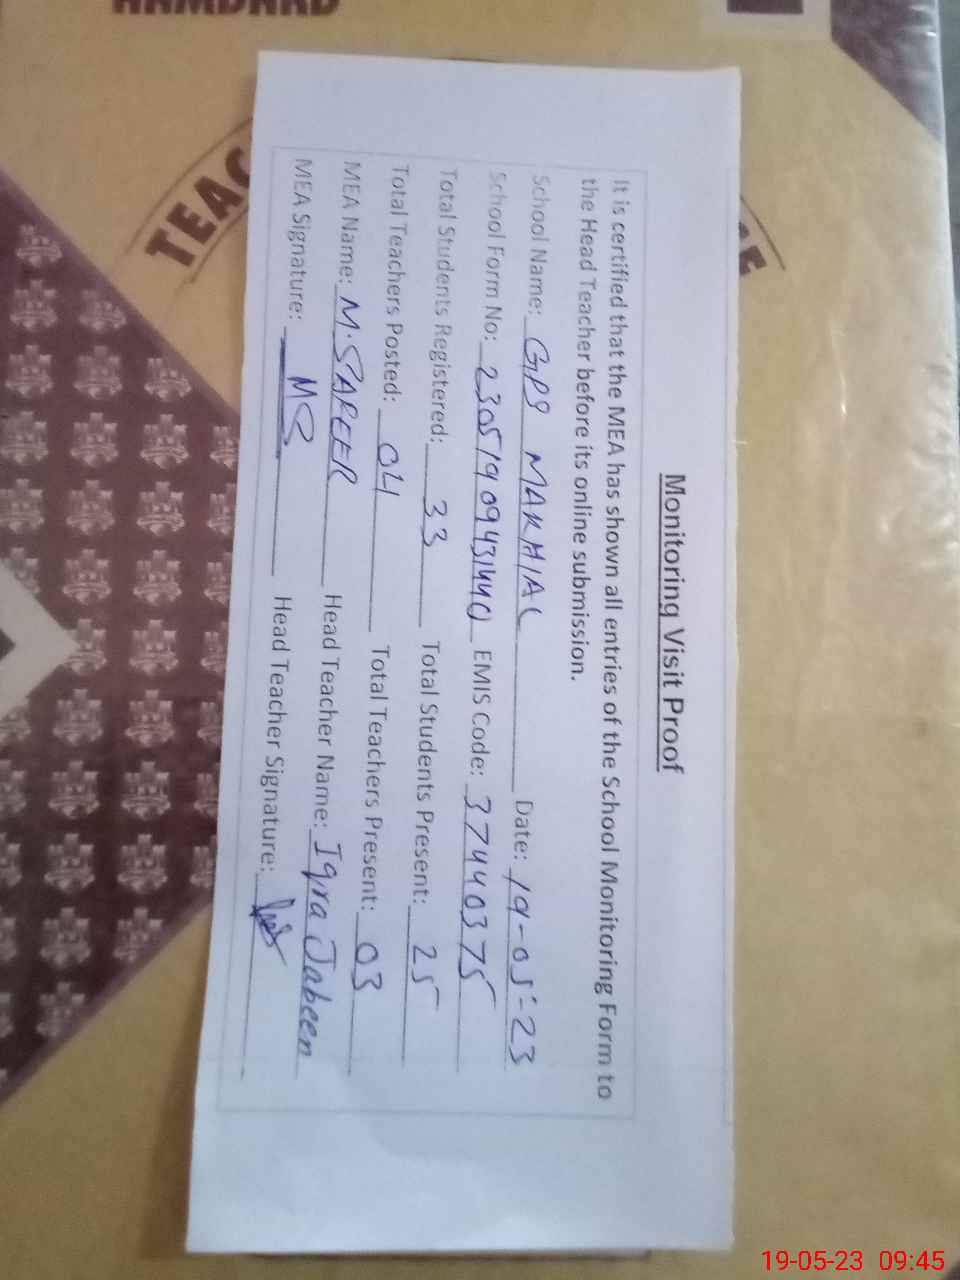 Monitoring Visit Proof
It is certified that the MEA has shown all entries of the School Monitoring Form to
the Head Teacher before its online submission.
School Name: GPS MAKHIAL Date: 19-05-23
School Form No: 23051909431440 EMIS Code: 37440375
Total Students Registered: 33 Total Students Present: 25
Total Teachers Posted: 04 Total Teachers Present: 03
MEA Name: M.SAFEER Head Teacher Name: Iqra Jabeen
MEA Signature: MS Head Teacher Signature:
HAMDARD
TEAC
ME
19-05-23 09:45